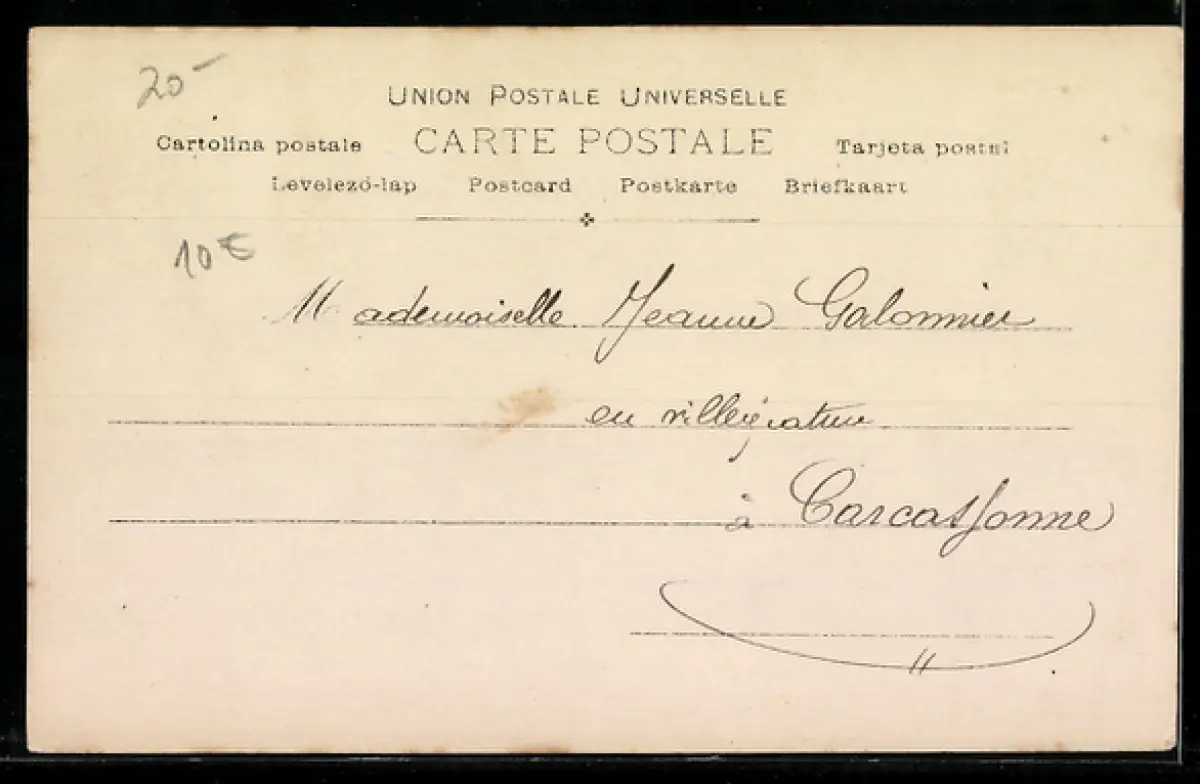 20-
UNION POSTALE UNIVERSELLE
Cartolina postale CARTE POSTALE Tarjeta postal
Levelező-lap Postcard Postkarte Briefkaart
10 €
Mademoiselle Jeanne Galonnier
en villégiature
à Carcassonne